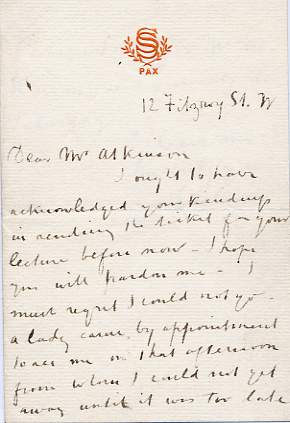 SS
PAX
12 Fitzroy St. W
Dear Mr Atkinson
I ought to have
acknowledged your kindness
in sending the ticket for your
lecture before now – I hope
you will pardon me – I
must regret I could not go –
a lady came by appointment
to see me on that afternoon
from whom I could not get
away until it was too late